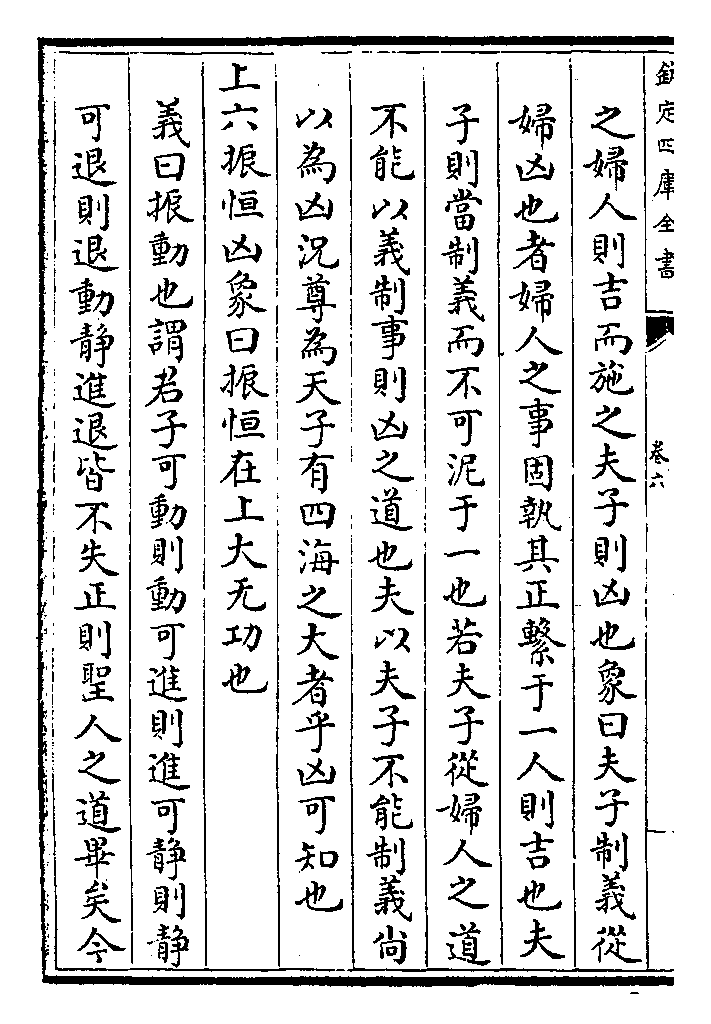 欽定四庫全書
卷六
之婦人則吉而施之夫子則凶也象曰夫子制義從
婦凶也者婦人之事固執其正繫于一人則吉也夫
子則當制義而不可泥于一也若夫子從婦人之道
不能以義制事則凶之道也夫以夫子不能制義尚
以為凶况尊為天子有四海之大者乎凶可知也
上六振恒凶象曰振恒在上大无功也
義曰振動也謂君子可動則動可進則進可静則静
可退則退動静進退皆不失正則聖人之道畢矣今